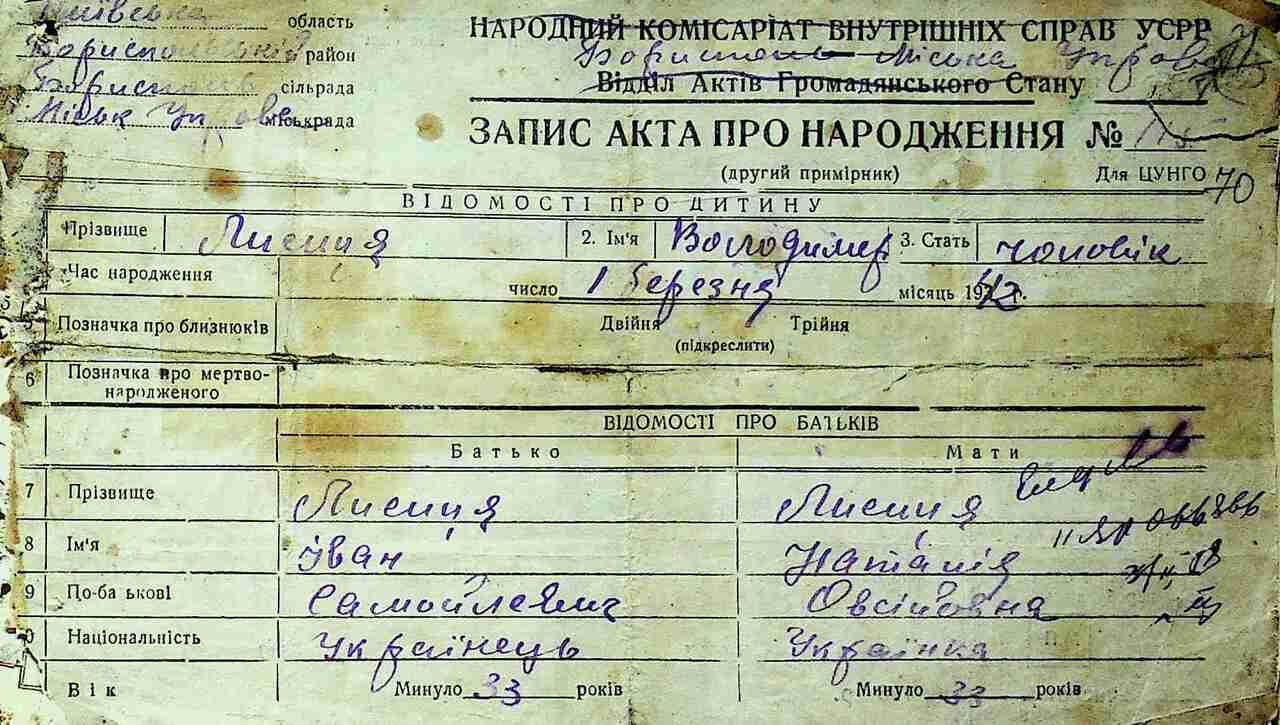 Київська область
Бориспольський район
Бориспольська сільрада
Міськ Управа міськрада
НАРОДНИЙ КОМІСАРІАТ ВНУТРІШНІХ СПРАВ УСРР
Бориспольська Міська Управа
Відділ Актів Громадянського Стану
ЗАПИС АКТА ПРО НАРОДЖЕННЯ №
(другий примірник) Для ЦУНГО 70
ВІДОМОСТІ ПРО ДИТИНУ
Прізвище Лисиця 2. Ім'я Володимер 3. Стать чоловік
Час народження число 1 березня місяць 1942 г.
Позначка про близнюків Двійня Трійня
(підкреслити)
6 Позначка про мертво-
народженого
ВІДОМОСТІ ПРО БАТЬКІВ
Батько Мати
7 Прізвище Лисиця Лисиця
8 Ім'я Іван Наталія
9 По-ба ькові Самойлевич Овсіївна
0 Національність Українець Українка
Вік Минуло 33 років Минуло 33 років